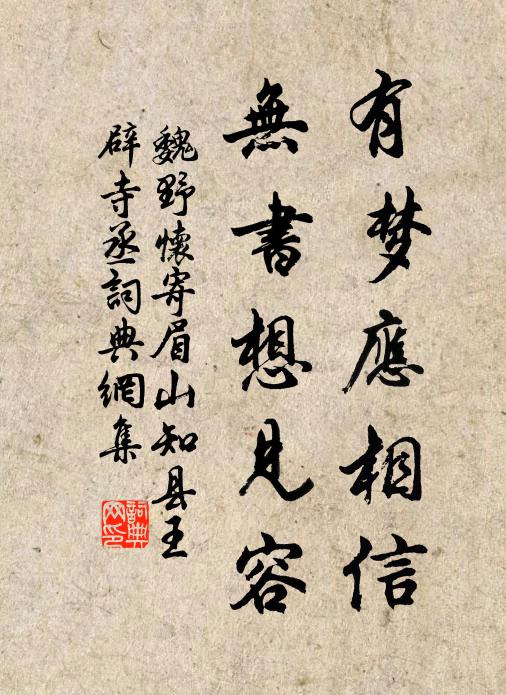 有梦應相信
無書想見容
魏野懷寄眉山知县王
辟寺丞詞典網集
詞典网印